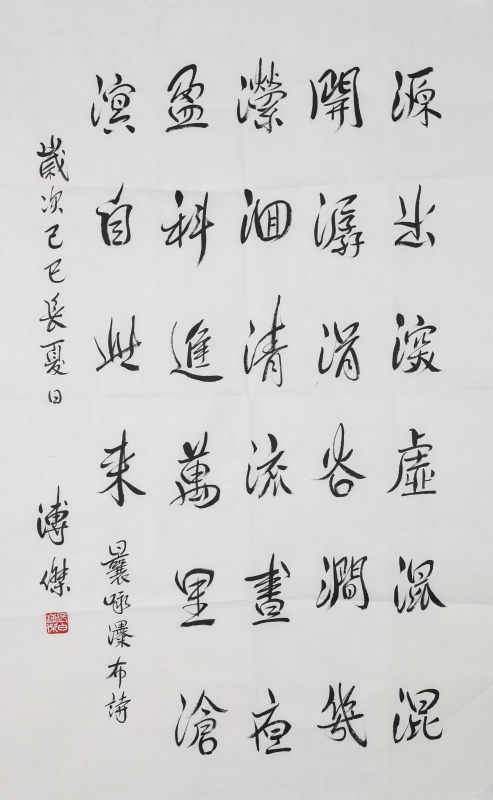 源出深虛混混
開潺涓谷澗幾
瀠洄清流晝夜
盈科進萬里滄
溟自此來
曩咏瀑布詩
歲次己巳長夏日
溥傑